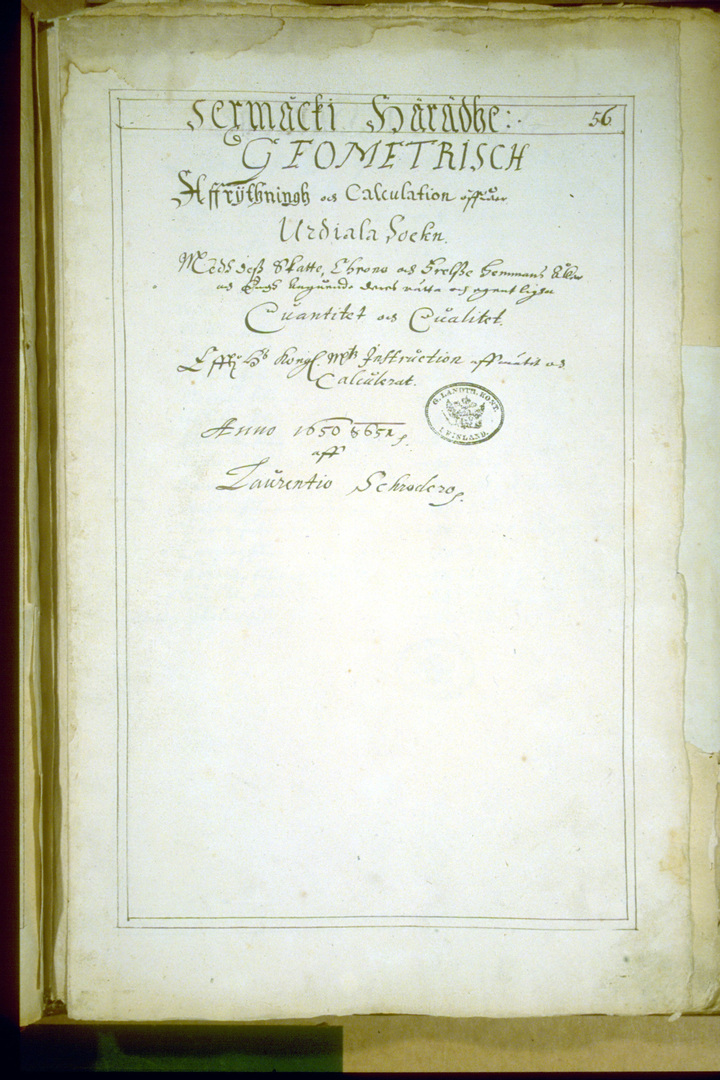 Sexmäcki Härädhe: 56
GEOMETRISCH
Affrijthningh och Calculation öffuer
Urdiala Sockn.
Medh dess Skatte, Chrono och Frelsse Hemmans Åker
och Engh, deres rätta och egentligha
Quantitet och Qualitet.
Effter Hs Kongl. Mtts Instruction affmätit och
Calculerat.
Anno 1650 & 651,
aff
Laurentio Schrodero,
G. LANDTM. KONT.
I FINLAND.